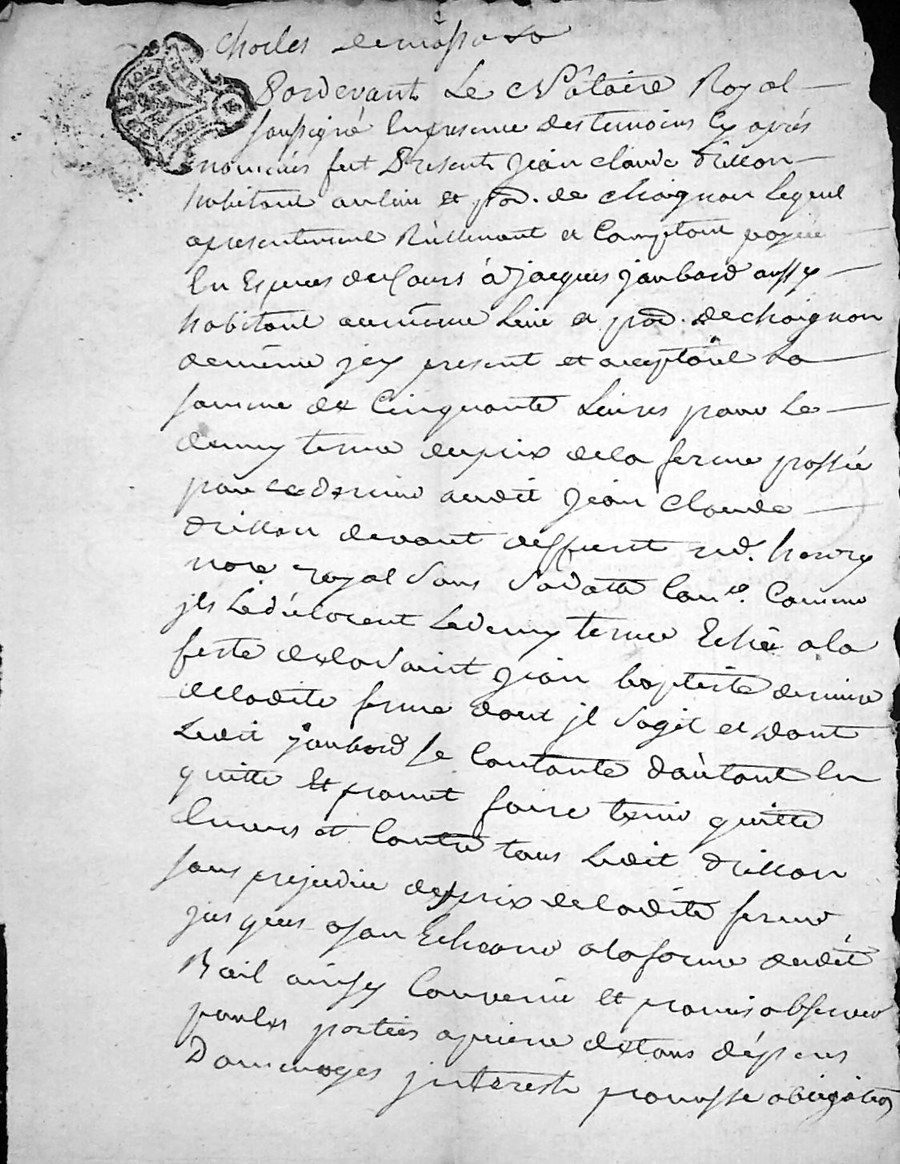 Charles
Pardevant Le Notaire Royal
soussigné En presence des temoins Cy aprés
nommés fut Present jean claude drillon
habitant au lieu et par. de chaignon lequel
a presentement Réellement et Comptant payée
En Especes de Cours à jacques jaubard aussy
habitant au meme Lieu et par. de chaignon
de meme jcy present et acceptant La
somme de Cinquante Livres pour Le
demy terme du prix de la ferme passée
par ce dernier audit jean Claude
drillon devant deffunt me. henry
nore royal sous sa datte Comme
jls Le déclarent Le demy terme Echu a la
feste de la saint jean baptiste derniere
de ladite ferme dont jl sagit et dont
Ledit jaubard se Contante dautant En
quitte Et promet faire tenir quitte
Envers et Contre tous Ledit drillon
sans prejudice du prix de ladite ferme
jusques a son Echeance a la forme dudit
Bail ainsy Convenu Et promis observer
par les parties a peine de tous dépens
Dommages jnterests promesse obligation